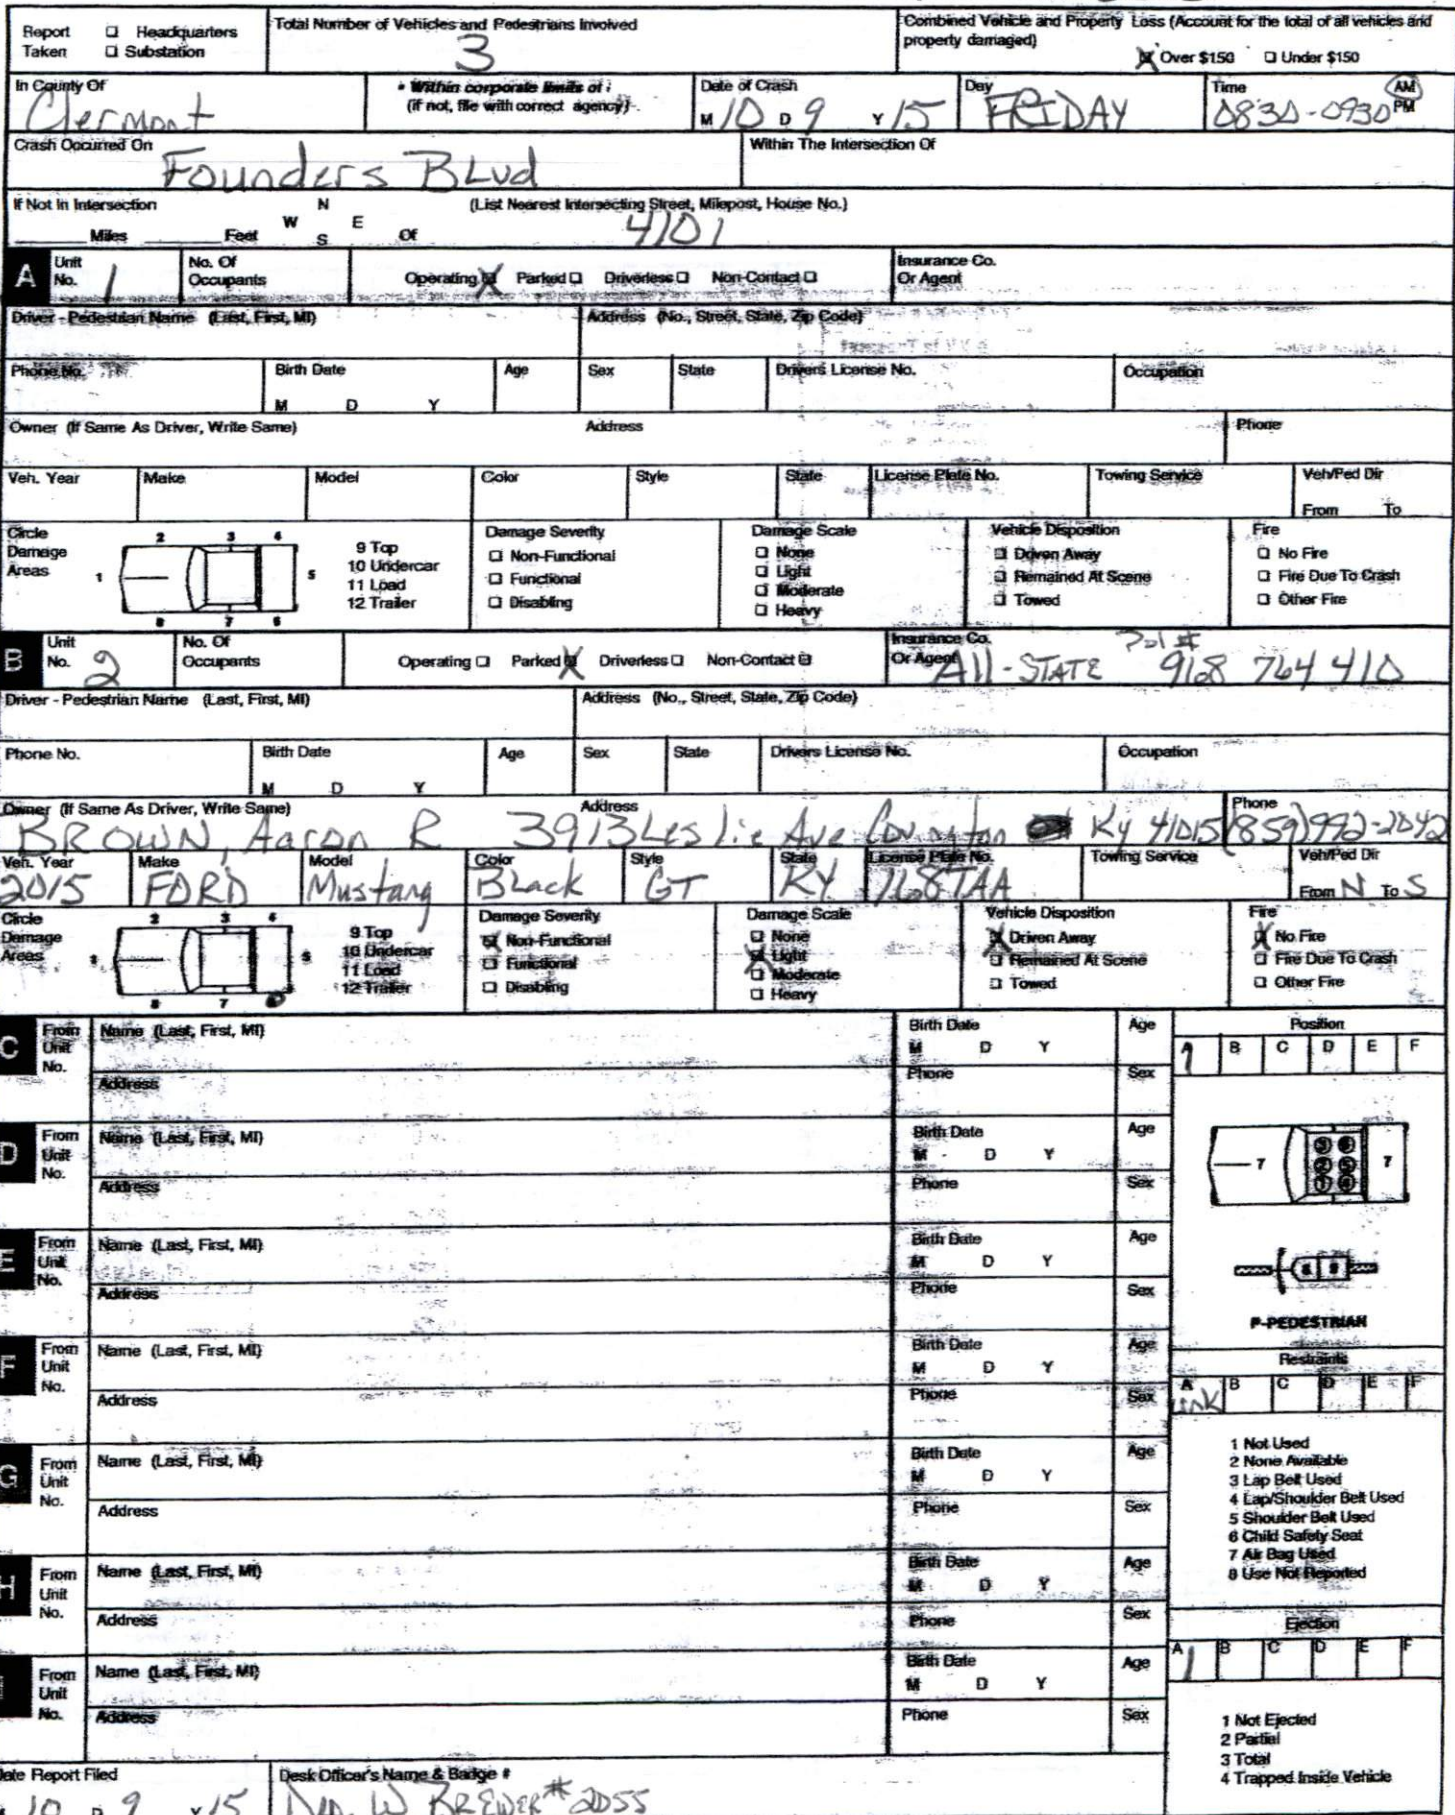 Report ☐ Headquarters
Taken ☐ Substation
Total Number of Vehicles and Pedestrians Involved
3
Combined Vehicle and Property Loss (Account for the total of all vehicles and
property damaged)
☒ Over $150 ☐ Under $150
In County Of
Clermont
• Within corporate limits of :
(if not, file with correct agency)
Date of Crash
M 10 D 9 Y 15
Day
FRIDAY
Time AM
0830-0930 PM
Crash Occurred On
Founders BLvd
Within The Intersection Of
If Not In Intersection N (List Nearest Intersecting Street, Milepost, House No.)
Miles Feet W E S Of 4101
A Unit No. 1
No. Of Occupants
Operating ☒ Parked ☐ Driverless ☐ Non-Contact ☐
Insurance Co.
Or Agent
Driver - Pedestrian Name (Last, First, MI) Address (No., Street, State, Zip Code)
Phone No. Birth Date Age Sex State Drivers License No. Occupation
M D Y
Owner (If Same As Driver, Write Same) Address Phone
Veh. Year Make Model Color Style State License Plate No. Towing Service Veh/Ped Dir
From To
Circle Damage Areas
1 2 3 4 5 6 7 8
9 Top
10 Undercar
11 Load
12 Trailer
Damage Severity
☐ Non-Functional
☐ Functional
☐ Disabling
Damage Scale
☐ None
☐ Light
☐ Moderate
☐ Heavy
Vehicle Disposition
☐ Driven Away
☐ Remained At Scene
☐ Towed
Fire
☐ No Fire
☐ Fire Due To Crash
☐ Other Fire
B Unit No. 2
No. Of Occupants
Operating ☐ Parked ☒ Driverless ☐ Non-Contact ☐
Insurance Co. Pol #
Or Agent All-STATE 968 764 410
Driver - Pedestrian Name (Last, First, MI) Address (No., Street, State, Zip Code)
Phone No. Birth Date Age Sex State Drivers License No. Occupation
M D Y
Owner (If Same As Driver, Write Same) Address Phone
BROWN, Aaron R 3913 Leslie Ave Covington Ky 41015 (859) 992-2042
Veh. Year Make Model Color Style State License Plate No. Towing Service Veh/Ped Dir
2015 FORD Mustang BLack GT KY 168TAA From N To S
Circle Damage Areas
2 3 4 5 7 8
9 Top
10 Undercar
11 Load
12 Trailer
Damage Severity
☒ Non-Functional
☐ Functional
☐ Disabling
Damage Scale
☐ None
☒ Light
☐ Moderate
☐ Heavy
Vehicle Disposition
☒ Driven Away
☐ Remained At Scene
☐ Towed
Fire
☒ No Fire
☐ Fire Due To Crash
☐ Other Fire
C From Unit No. Name (Last, First, MI) Birth Date M D Y Age
Address Phone Sex
D From Unit No. Name (Last, First, MI) Birth Date M D Y Age
Address Phone Sex
E From Unit No. Name (Last, First, MI) Birth Date M D Y Age
Address Phone Sex
F From Unit No. Name (Last, First, MI) Birth Date M D Y Age
Address Phone Sex
G From Unit No. Name (Last, First, MI) Birth Date M D Y Age
Address Phone Sex
H From Unit No. Name (Last, First, MI) Birth Date M D Y Age
Address Phone Sex
I From Unit No. Name (Last, First, MI) Birth Date M D Y Age
Address Phone Sex
Position
1 B C D E F
7 3 6 2 5 1 4 7
8 9
P-PEDESTRIAN
Restraints
A B C D E F
UNK
1 Not Used
2 None Available
3 Lap Belt Used
4 Lap/Shoulder Belt Used
5 Shoulder Belt Used
6 Child Safety Seat
7 Air Bag Used
8 Use Not Reported
Ejection
A B C D E F
1
1 Not Ejected
2 Partial
3 Total
4 Trapped Inside Vehicle
Date Report Filed
10 D 9 Y 15
Desk Officer's Name & Badge #
W BREWER #2055